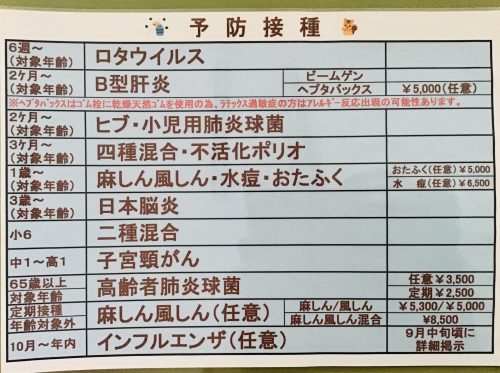 予防接種
6週～
(対象年齢)
ロタウイルス
2ケ月～
(対象年齢)
B型肝炎
ビームゲン
ヘプタバックス
￥5,000(任意)
※ヘプタバックスはゴム栓に乾燥天然ゴムを使用の為、ラテックス過敏症の方はアレルギー反応出現の可能性あります。
2ケ月～
(対象年齢)
ヒブ・小児用肺炎球菌
3ケ月～
(対象年齢)
四種混合・不活化ポリオ
1歳～
(対象年齢)
麻しん風しん・水痘・おたふく
おたふく(任意)￥5,000
水　痘(任意)￥6,500
3歳～
(対象年齢)
日本脳炎
小6
二種混合
中1～高1
子宮頸がん
65歳以上
対象年齢
高齢者肺炎球菌
任意￥3,500
定期￥2,500
定期接種
年齢対象外
麻しん風しん(任意)
麻しん/風しん
麻しん風しん混合
￥5,300/￥5,000
￥8,500
10月～年内
インフルエンザ(任意)
9月中旬頃に
詳細掲示